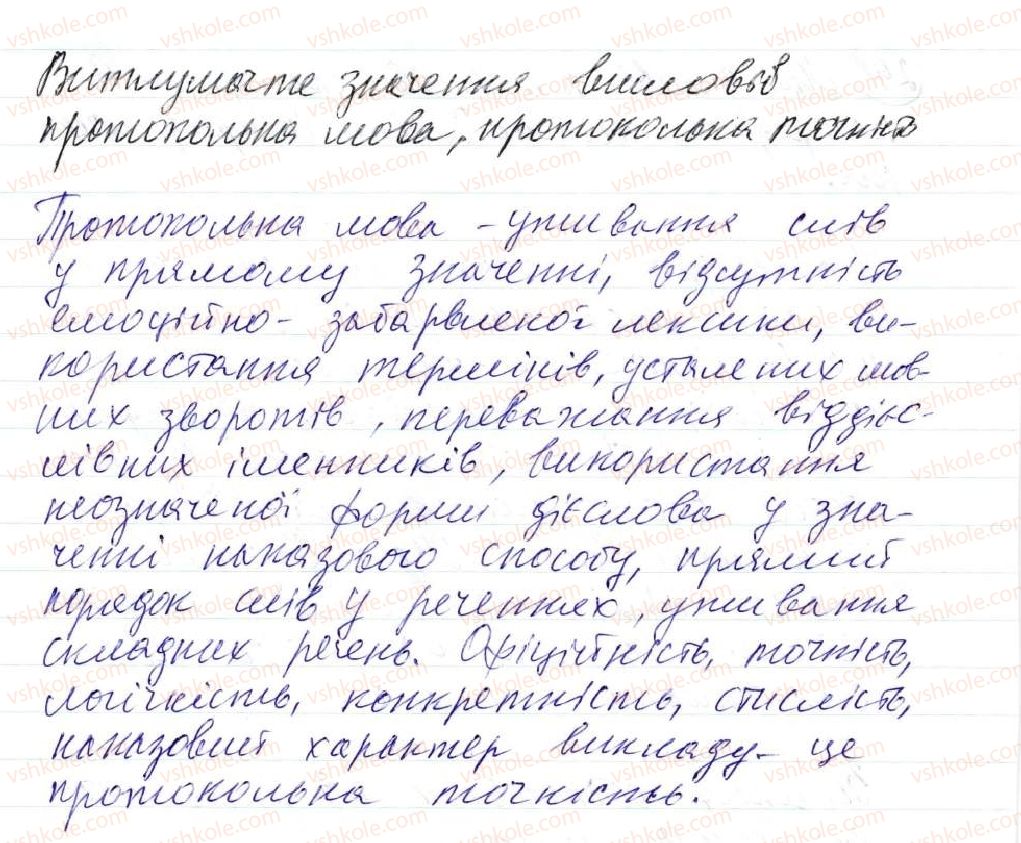 Витлумачте значення висловів
протокольна мова, протокольна точність
Протокольна мова - уживання слів
у прямому значенні, відсутність
емоційно- забарвленої лексики, ви-
користання термінів, усталених мов-
них зворотів, переважання віддієс-
лівних іменників, використання
неозначеної форми дієслова у зна-
ченні наказового способу, прямий
порядок слів у реченнях, уживання
складних речень. Офіційність, точність,
логічність, конкретність, стислість,
наказовий характер викладу- це
протокольна точність.